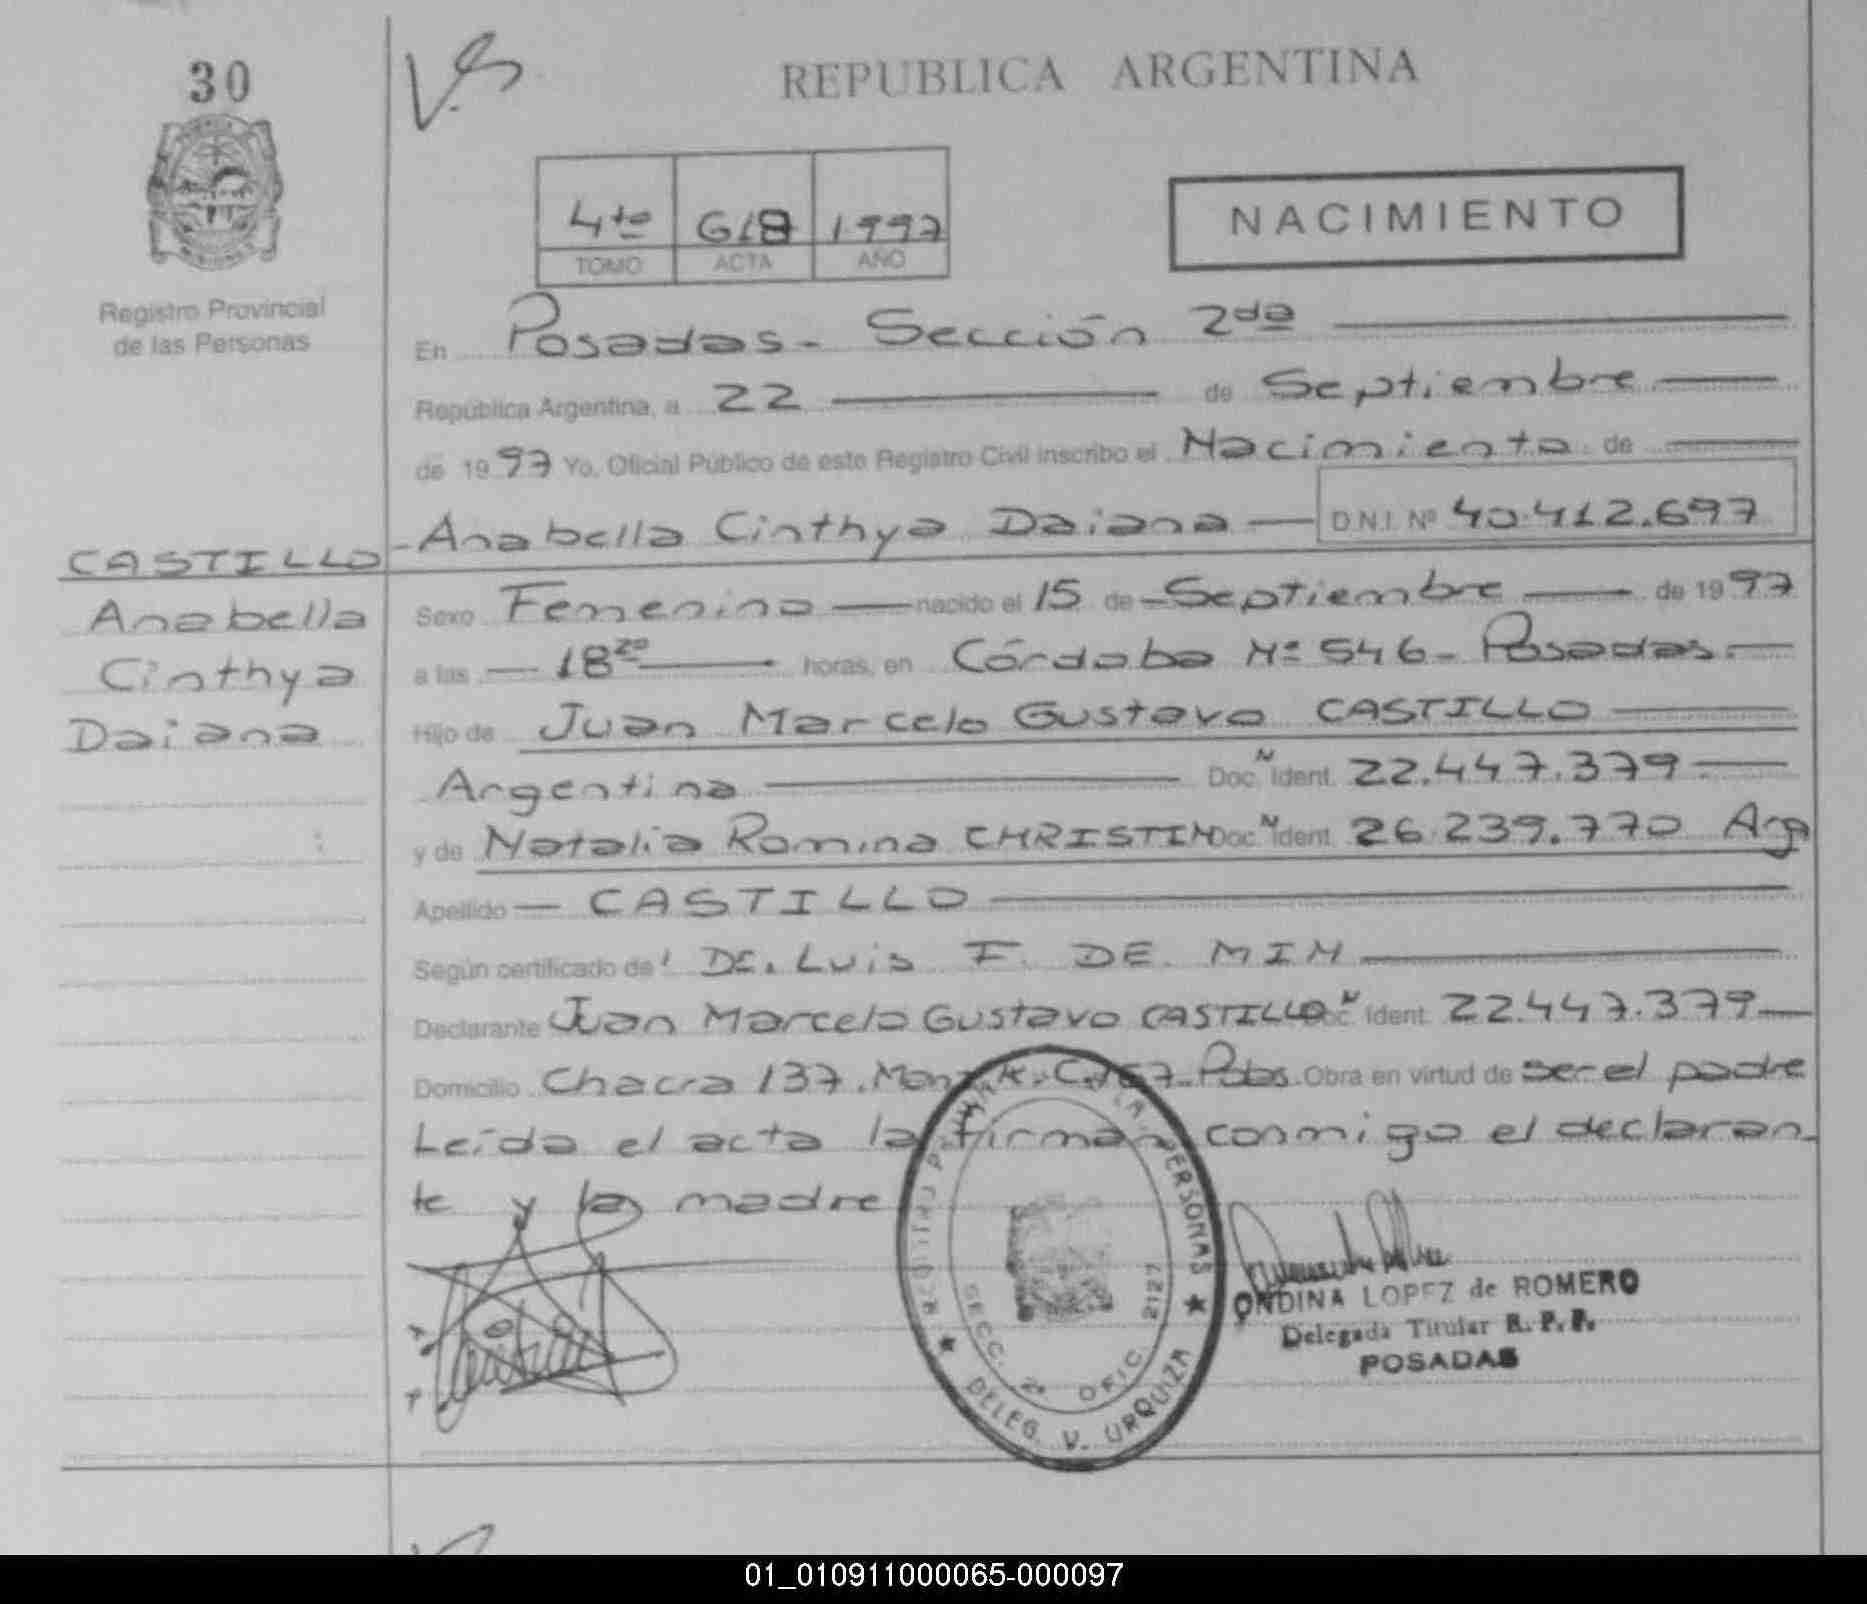 30
V.S
REPUBLICA ARGENTINA
4to 618 1997
TOMO ACTA AÑO
NACIMIENTO
Registro Provincial
de las Personas
En Posadas - Sección 2da
República Argentina, a 22 de Septiembre
de 1997 Yo, Oficial Público de este Registro Civil inscribo el Nacimiento de
Anabella Cinthya Daiana D.N.I. Nº 40.412.697
CASTILLO
Anabella
Cinthya
Daiana
Sexo Femenino nacido el 15 de Septiembre de 1997
a las 18 20 horas, en Córdoba Nº 546 - Posadas.
Hijo de Juan Marcelo Gustavo CASTILLO
Argentina Doc. N Ident. 22.447.379
y de Natalia Romina CHRISTIN Doc. N Ident. 26.239.770 Arg
Apellido CASTILLO
Según certificado de Dr. Luis F. DE MIN
Declarante Juan Marcelo Gustavo CASTILLO Doc. N Ident. 22.447.379
Domicilio Chacra 137. Pdas. Obra en virtud de ser el padre
Leída el acta la firman conmigo el declaran-
te y la madre
PERSONAS
SECC. 2ª OFIC. 2127
DELEG. V. URQUIZA
ONDINA LOPEZ de ROMERO
Delegada Titular R. P. P.
POSADAS
01_010911000065-000097